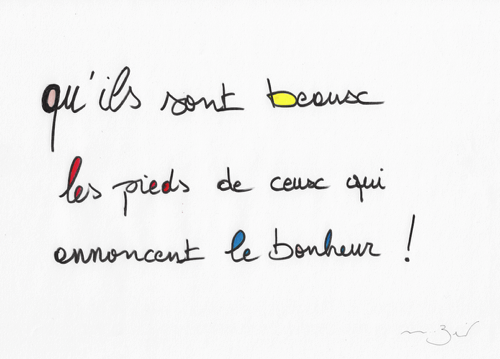 qu'ils sont beaux
les pieds de ceux qui
annoncent le bonheur !